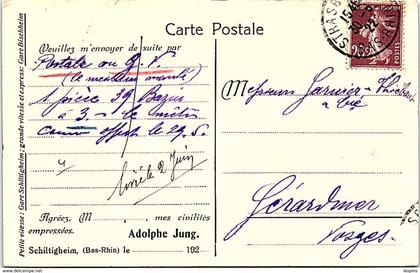 Carte Postale
Veuillez m'envoyer de suite par
Postale ou G. V.
(le meilleur marché)
1 pièce 39
à 3.- le mètre
comme offert le 29.5.
livré le 2 Juin
Agréez, M mes civilités
empressées.
Adolphe Jung.
Schiltigheim, (Bas-Rhin) le 192
Petite vitesse: Gare Schiltigheim; grande vitesse et express: Gare Bischheim
STRASB
Messieurs Garnier-Thiébaut
Gérardmer
Vosges.